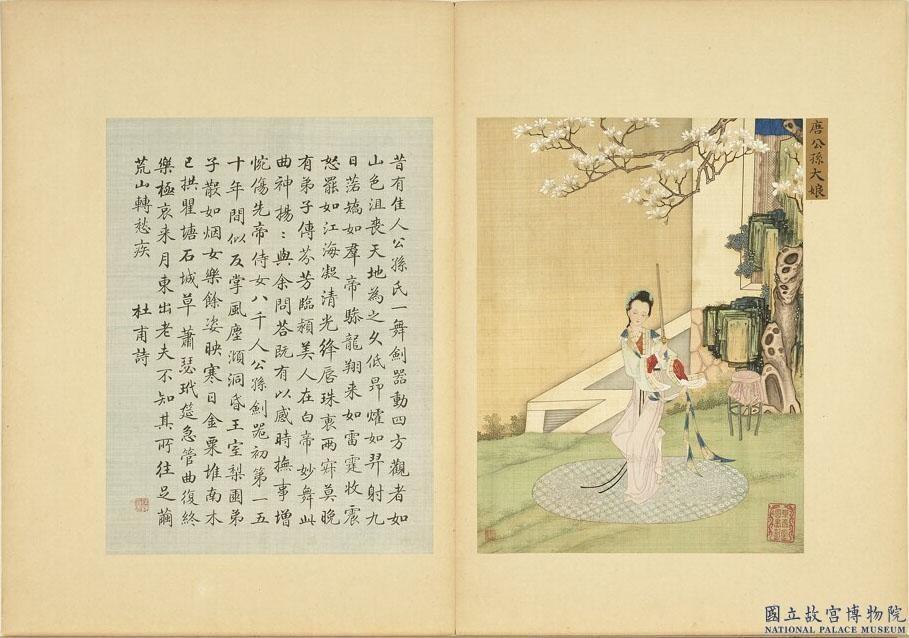 唐公孫大娘
昔有佳人公孫氏一舞劍器動四方觀者如
山色沮喪天地為之久低昂㸌如羿射九
日落矯如羣帝驂龍翔来如雷霆收震
怒罷如江海凝清光絳唇珠袖兩寂莫晚
有弟子傳芬芳臨潁美人在白帝妙舞此
曲神揚:與余問荅既有以感時撫事增
惋傷先帝侍女八千人公孫劍器初第一五
十年間似反掌風塵澒洞昏王室梨園弟
子散如烟女樂餘姿映寒日金粟堆南木
已拱瞿塘石城草蕭瑟玳筵急管曲復終
樂極哀来月東出老夫不知其所往足繭
荒山轉愁疾 杜甫詩
國立故宮博物院
NATIONAL PALACE MUSEUM